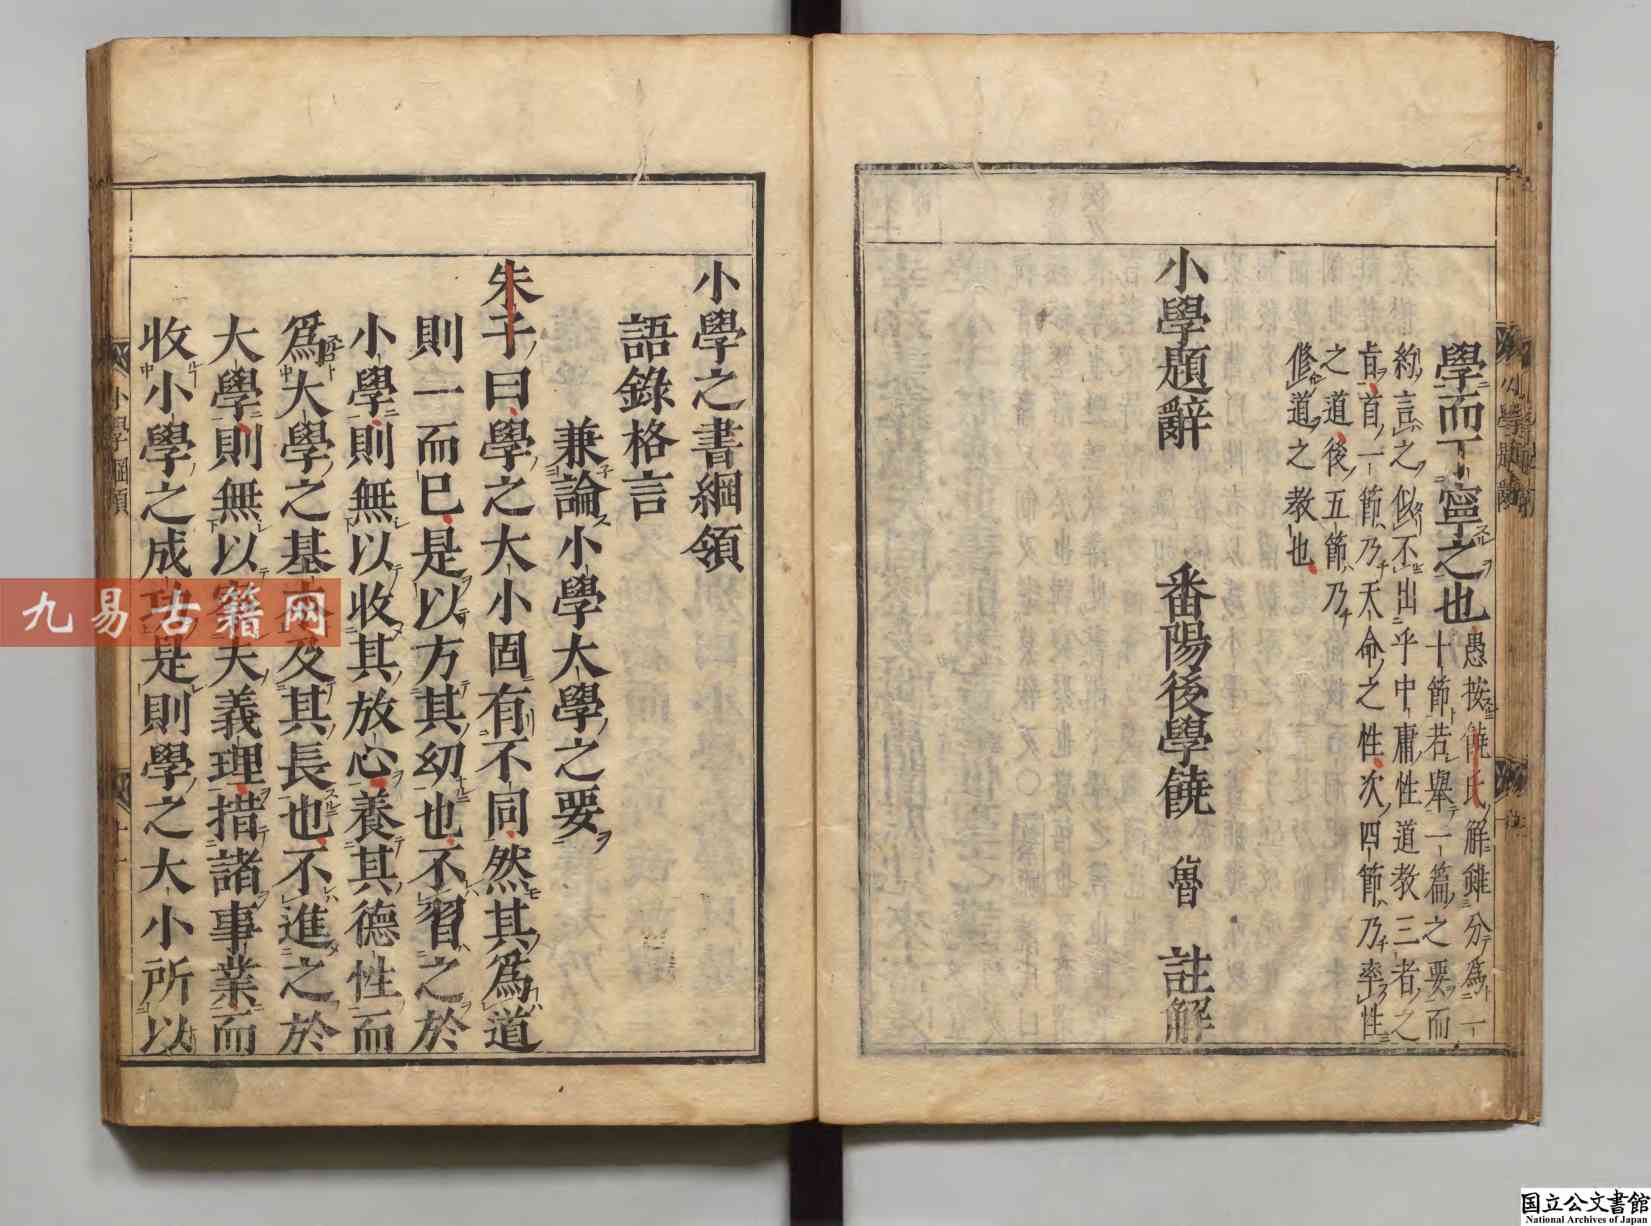 學而丁寧之也愚按饒氏解雖分爲一
十節若舉一篇之要而
約言之似不出乎中庸性道教三者之
㫖首一節乃天命之性次四節乃率性
之道後五節乃
修道之教也
小學題辭 番陽後學饒 魯 註解
小學之書綱領
語錄格言
兼論小學大學之要
朱子曰學之大小固有不同然其爲道
則一而已是以方其幼也不習之於
小學則無以收其放心養其德性而
爲大學之基本及其長也不進之於
大學則無以察夫義理措諸事業而
收小學之成功是則學之大小所以
小學綱領
小學題辭
九易古籍网
国立公文書館
National Archives of Japan